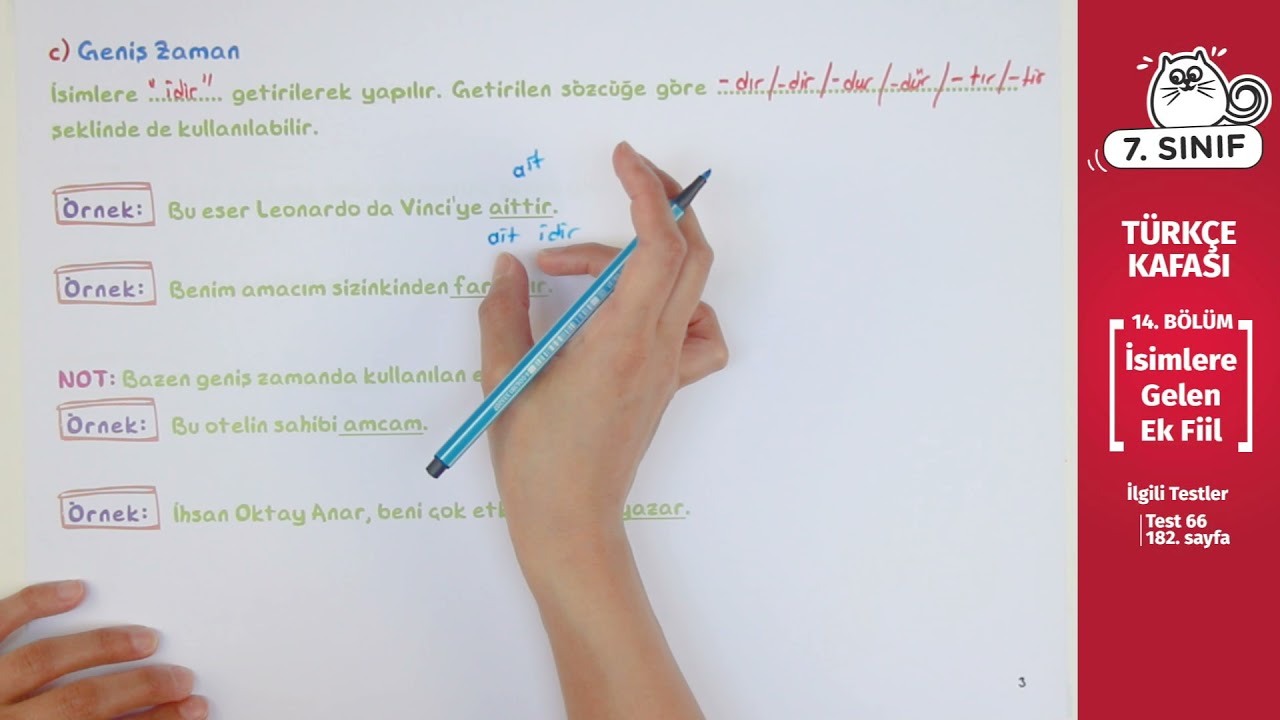 c) Geniş Zaman
İsimlere "idir" getirilerek yapılır. Getirilen sözcüğe göre -dır/-dir/-dur/-dür/-tır/-tir
şeklinde de kullanılabilir.
ait
Örnek: Bu eser Leonardo da Vinci'ye aittir.
ait idir
Örnek: Benim amacım sizinkinden
NOT: Bazen geniş zamanda kullanılan
Örnek: Bu otelin sahibi amcam.
Örnek: İhsan Oktay Anar, beni çok yazar.
3
7. SINIF
TÜRKÇE
KAFASI
14. BÖLÜM
İsimlere
Gelen
Ek Fiil
İlgili Testler
Test 66
182. sayfa